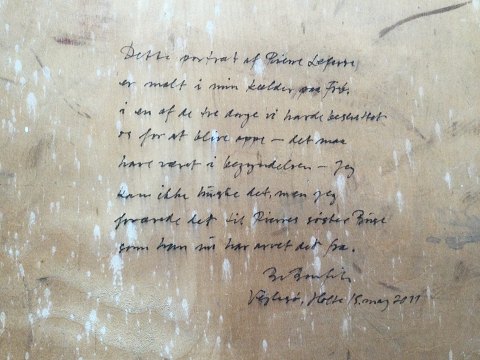 Dette portræt af Pierre Laforre
er malt i min kælder paa Frb.
i en af de tre dage vi havde besluttet
os for at blive oppe – det maa
have været i begyndelsen – Jeg
kan ikke huske det, men jeg
forærede det til Pierres søster
som han nu har arvet det fra.
Bo Bonfils
Vejlesø, Holte 15. maj 2011